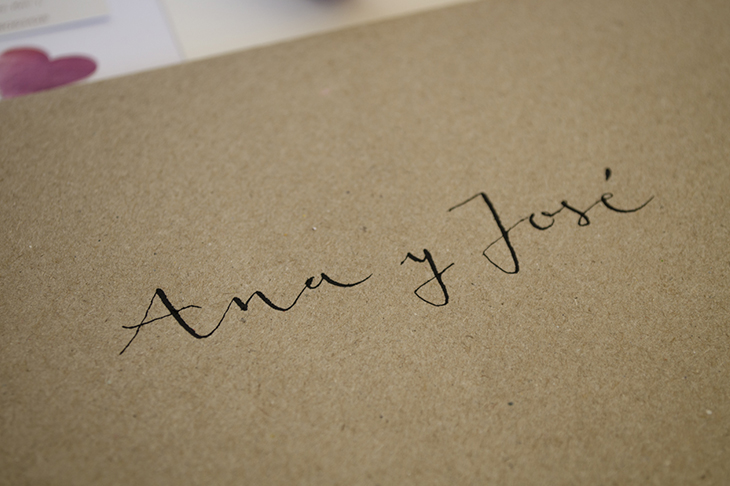 Ana y José